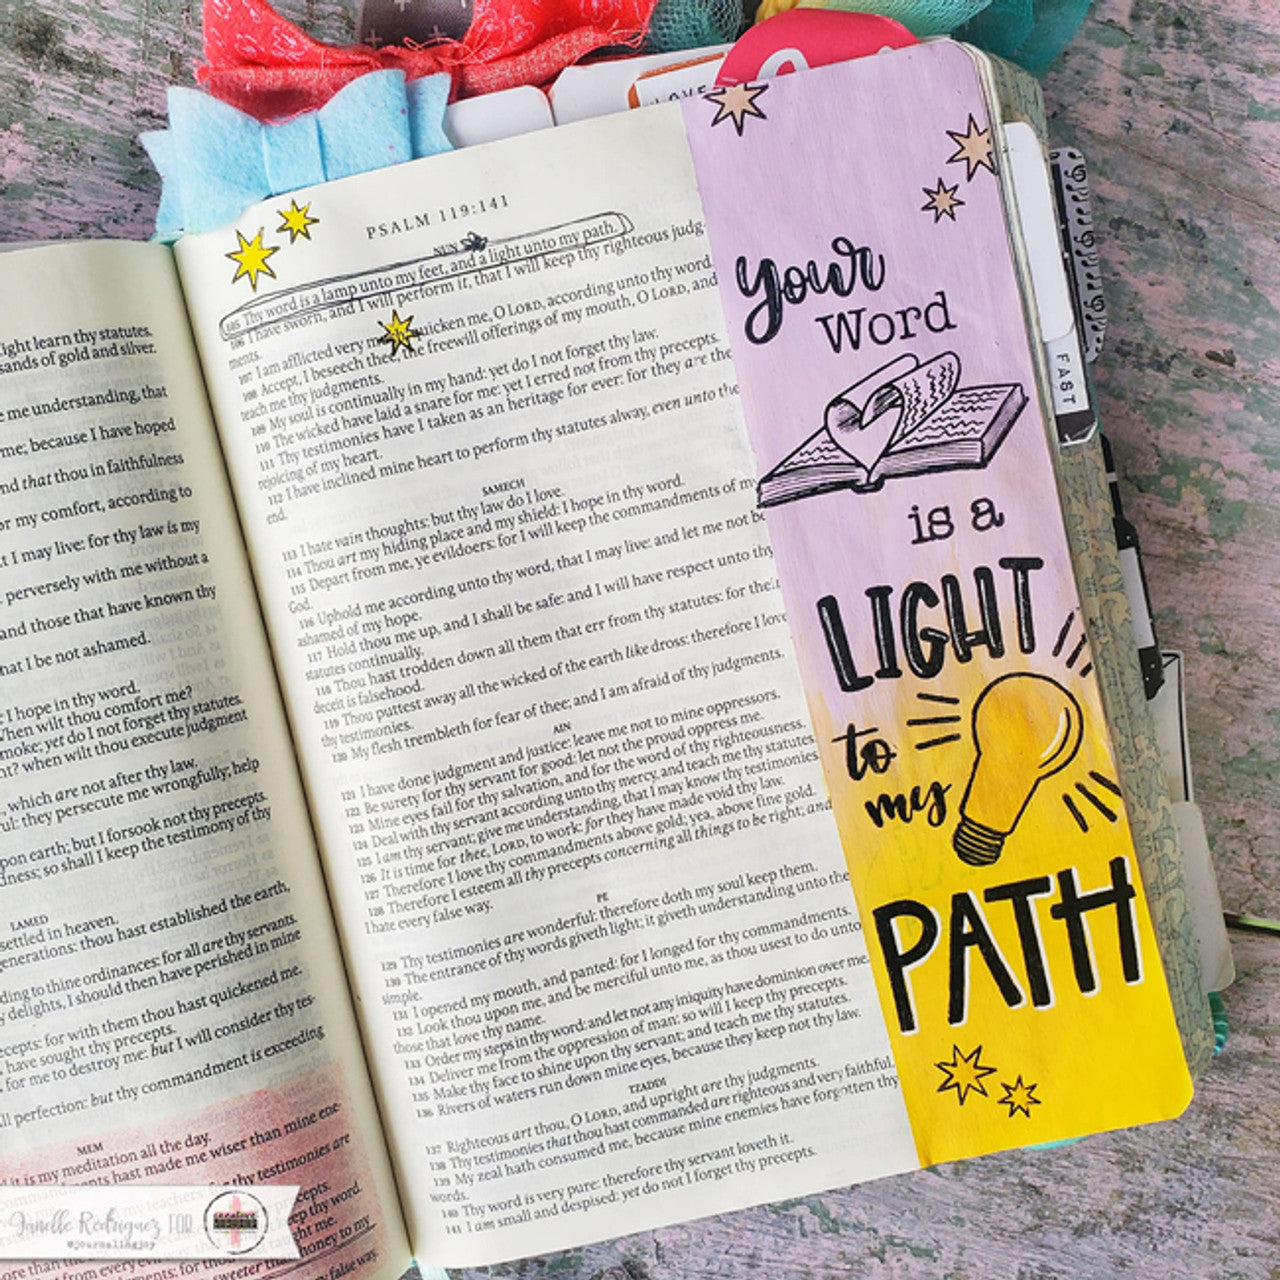 LOVE
FAST
ight learn thy statutes.
sands of gold and silver.
me understanding, that
me; because I have hoped
nd that thou in faithfulness
or my comfort, according to
t I may live: for thy law is my
perversely with me without a
and those that have known thy
hat I be not ashamed.
I hope in thy word.
When wilt thou comfort me?
smoke; yet do I not forget thy statutes.
nt? when wilt thou execute judgment
, which are not after thy law.
ful: they persecute me wrongfully, help
pon earth; but I forsook not thy precepts.
dness; so shall I keep the testimony of thy
LAMED
settled in heaven.
generations: thou hast established the earth,
ding to thine ordinances: for all are thy servants.
y delights, I should then have perished in mine
ecepts: for with them thou hast quickened me.
have sought thy precepts.
for me to destroy me: but I will consider thy tes-
ll perfection: but thy commandment is exceeding
MEM
it is my meditation all the day.
commandments hast made me wiser than mine ene-
my teachers: for thy testimonies are
precepts.
keep thy word.
taught me.
sweeter than honey to my
false way.
Janelle Rodriguez FOR
@journalingjoy
PSALM 119:141
NUN
105 Thy word is a lamp unto my feet, and a light unto my path.
106 I have sworn, and I will perform it, that I will keep thy righteous judg-
ments.
107 I am afflicted very quicken me, O LORD, according unto thy word.
108 Accept, I beseech thee, the freewill offerings of my mouth, O LORD, and
teach me thy judgments.
109 My soul is continually in my hand: yet do I not forget thy law.
110 The wicked have laid a snare for me: yet I erred not from thy precepts.
111 Thy testimonies have I taken as an heritage for ever: for they are the
rejoicing of my heart.
112 I have inclined mine heart to perform thy statutes alway, even unto the
end.
SAMECH
113 I hate vain thoughts: but thy law do I love.
114 Thou art my hiding place and my shield: I hope in thy word.
115 Depart from me, ye evildoers: for I will keep the commandments of my
God.
116 Uphold me according unto thy word, that I may live: and let me not be
ashamed of my hope.
117 Hold thou me up, and I shall be safe: and I will have respect unto thy
statutes continually.
118 Thou hast trodden down all them that err from thy statutes: for their
deceit is falsehood.
119 Thou puttest away all the wicked of the earth like dross: therefore I love
thy testimonies.
120 My flesh trembleth for fear of thee; and I am afraid of thy judgments.
AIN
121 I have done judgment and justice: leave me not to mine oppressors.
122 Be surety for thy servant for good: let not the proud oppress me.
123 Mine eyes fail for thy salvation, and for the word of thy righteousness.
124 Deal with thy servant according unto thy mercy, and teach me thy statutes.
125 I am thy servant; give me understanding, that I may know thy testimonies.
126 It is time for thee, LORD, to work: for they have made void thy law.
127 Therefore I love thy commandments above gold; yea, above fine gold.
128 Therefore I esteem all thy precepts concerning all things to be right; and
I hate every false way.
PE
129 Thy testimonies are wonderful: therefore doth my soul keep them.
130 The entrance of thy words giveth light; it giveth understanding unto the
simple.
131 I opened my mouth, and panted: for I longed for thy commandments.
132 Look thou upon me, and be merciful unto me, as thou usest to do unto
those that love thy name.
133 Order my steps in thy word: and let not any iniquity have dominion over me.
134 Deliver me from the oppression of man: so will I keep thy precepts.
135 Make thy face to shine upon thy servant; and teach me thy statutes.
136 Rivers of waters run down mine eyes, because they keep not thy law.
TZADDI
137 Righteous art thou, O LORD, and upright are thy judgments.
138 Thy testimonies that thou hast commanded are righteous and very faithful.
139 My zeal hath consumed me, because mine enemies have forgotten thy
words.
140 Thy word is very pure: therefore thy servant loveth it.
141 I am small and despised: yet do not I forget thy precepts.
Your
Word
is a
LIGHT
to
my
PATH